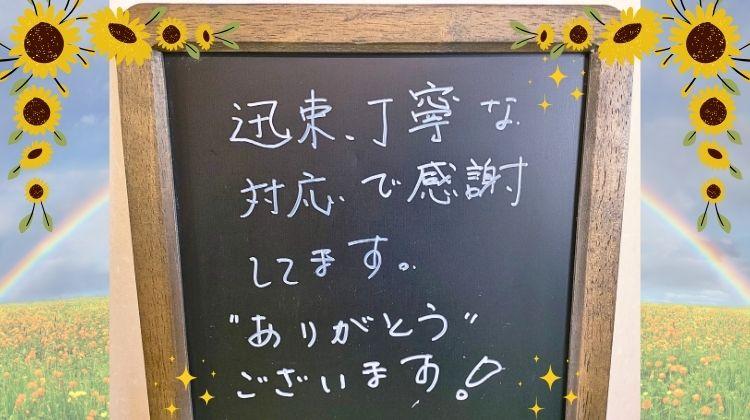 迅東、丁寧な
対応で感謝
してます。
"ありがとう"
ございます!